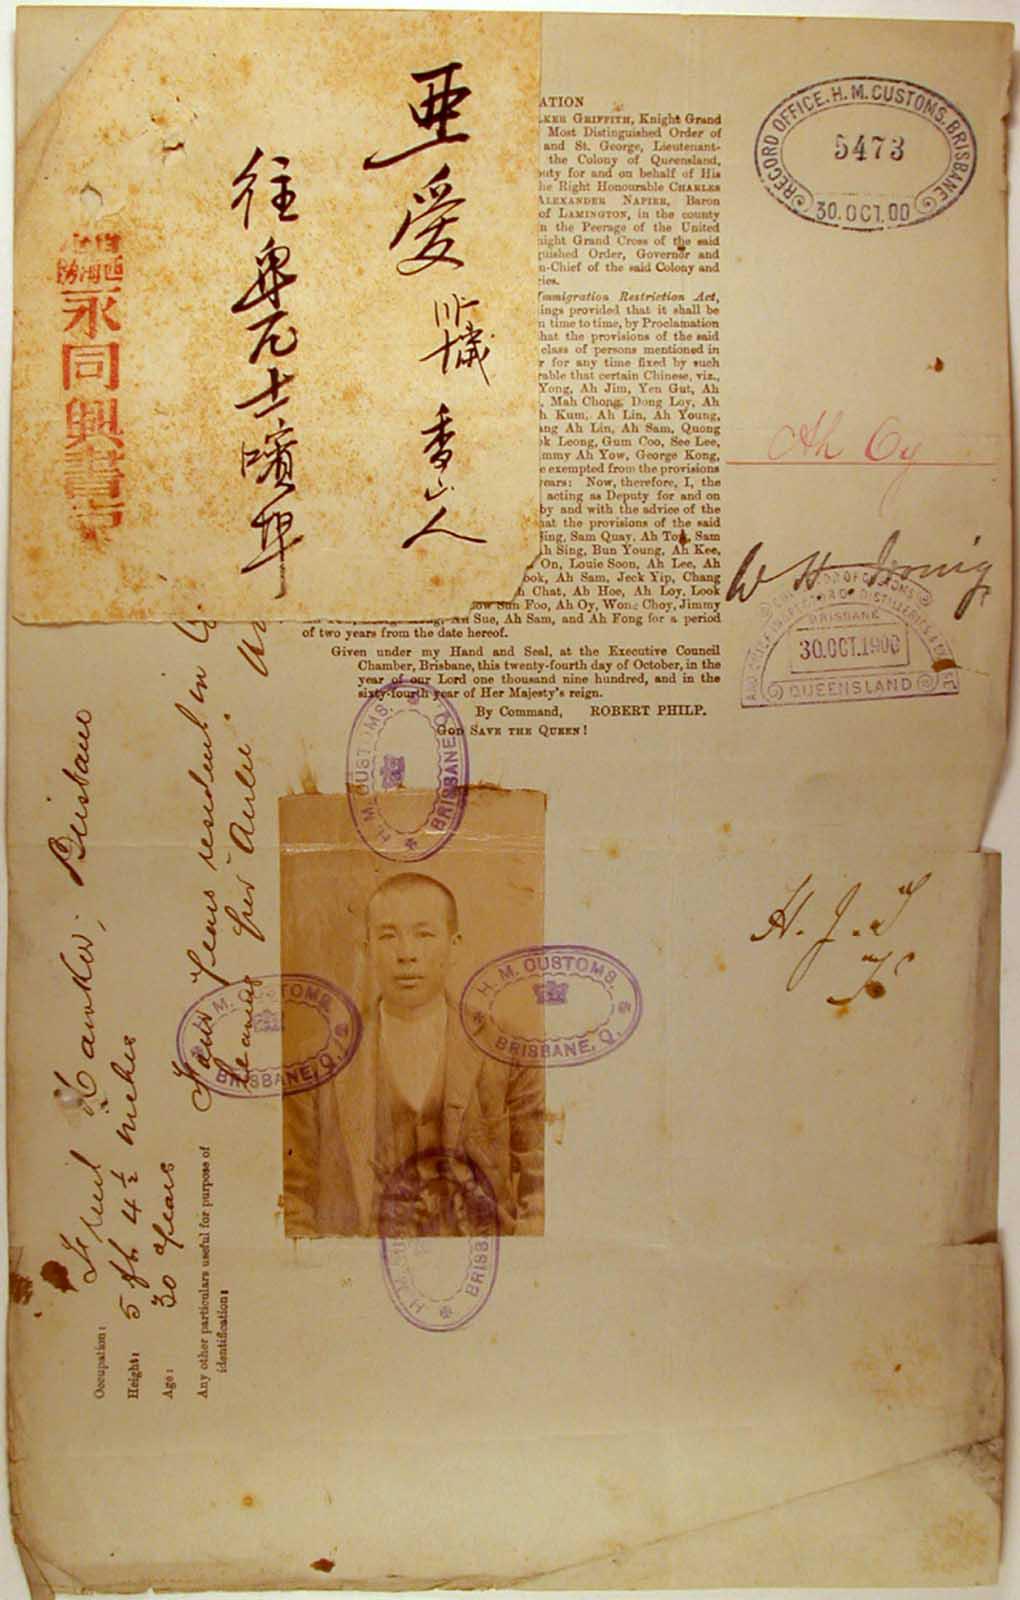 亜愛 卅歲 香山人
往卑厘士嚬埠
永同興書柬
ATION
LKER GRIFFITH, Knight Grand
Most Distinguished Order of
and St. George, Lieutenant-
the Colony of Queensland,
uty for and on behalf of His
he Right Honourable CHARLES
ALEXANDER NAPIER, Baron
of LAMINGTON, in the county
n the Peerage of the United
night Grand Cross of the said
guished Order, Governor and
n-Chief of the said Colony and
cies.
Immigration Restriction Act,
ings provided that it shall be
n time to time, by Proclamation
hat the provisions of the said
class of persons mentioned in
r for any time fixed by such
rable that certain Chinese, viz.,
Yong, Ah Jim, Yen Gut, Ah
, Mah Chong, Dong Loy, Ah
h Kum, Ah Lin, Ah Young,
ang Ah Lin, Ah Sam, Quong
ok Leong, Gum Coo, See Lee,
immy Ah Yow, George Kong,
e exempted from the provisions
years: Now, therefore, I, the
acting as Deputy for and on
by and with the advice of the
hat the provisions of the said
Sing, Sam Quay, Ah Tong, Sam
h Sing, Bun Young, Ah Kee,
On, Louie Soon, Ah Lee, Ah
ook, Ah Sam, Jeck Yip, Chang
h Chat, Ah Hoe, Ah Loy, Look
ow Sun Foo, Ah Oy, Wong Choy, Jimmy
Ah Sue, Ah Sam, and Ah Fong for a period
of two years from the date hereof.
Given under my Hand and Seal, at the Executive Council
Chamber, Brisbane, this twenty-fourth day of October, in the
year of our Lord one thousand nine hundred, and in the
sixty-fourth year of Her Majesty's reign.
By Command, ROBERT PHILP.
GOD SAVE THE QUEEN!
RECORD OFFICE. H. M. CUSTOMS, BRISBANE
5473
30.OCT.00
Ah Oy
W H Irving
INSPECTOR OF DISTILLERIES
BRISBANE
30.OCT.1900
QUEENSLAND
H. M. CUSTOMS.
BRISBANE, Q.
H. M. CUSTOMS.
BRISBANE, Q.
H. M. CUSTOMS.
BRISBANE, Q.
H. M. CUSTOMS
BRISBANE
Occupation: Fruit Hawker, Brisbane
Height: 5 ft 4 ½ inches
Age: 30 years
Any other particulars useful for purpose of
identification:
Four years resident in
Leaving per Airlie